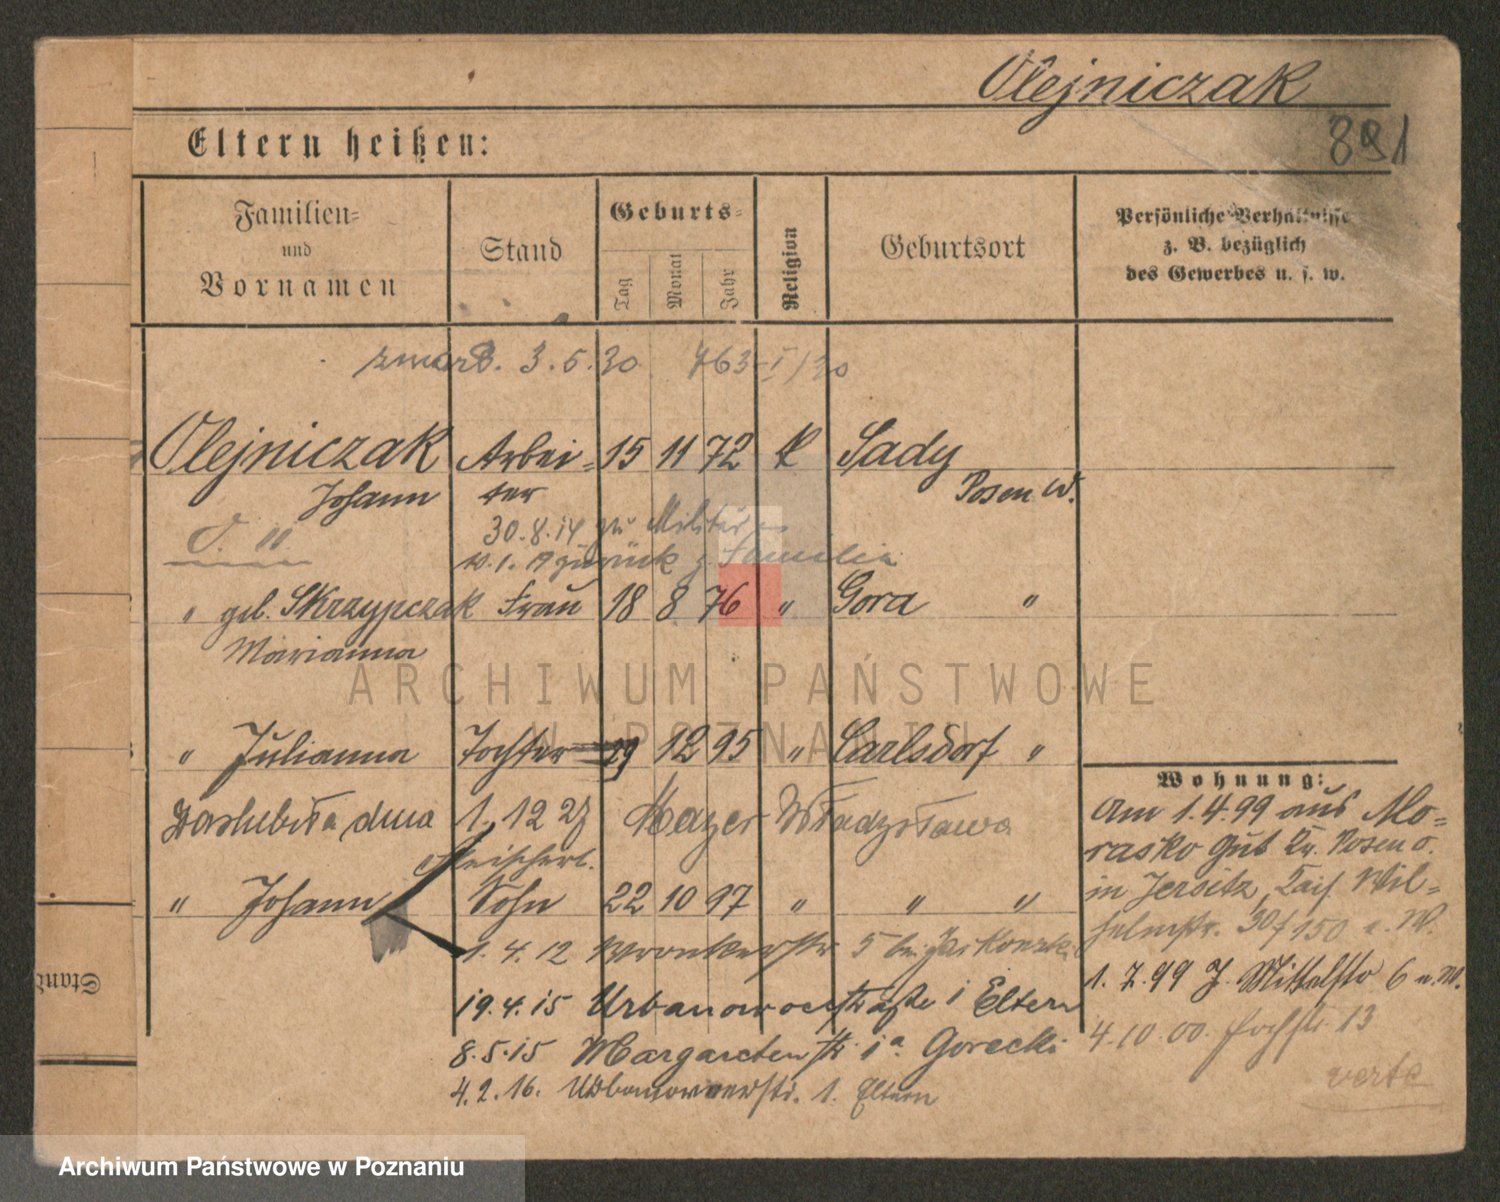 Olejniczak
891
Eltern heißen:
Familien- und Vornamen
Stand
Geburts-
Tag
Monat
Jahr
Religion
Geburtsort
Persönliche Verhältnisse
z. B. bezüglich
des Gewerbes u. s. w.
3.5.30 763-I/30
Olejniczak Arbei- 15 11 72 k Sady
Johann ter Posen W.
O. "
30.8.14 zu Militär
zurück z Familie
" geb. Skrzypczak Frau 18 8 76 " Gora "
Marianna
" Julianna Tochter 29 12 95 " Carlsdorf "
Zaślubiła dnia 1.12 27 Władysława
" Johann Sohn 22 10 97 " " "
1.4.12 Wronkerstr 5 bei
19.4.15 Urbanowoerstraße i Eltern
8.5.15 Margaretenstr. 1a Gorecki
4.2.16. Urbanowoerstr. 1. Eltern
Wohnung:
Am 1.4.99 aus Mo-
rasko Gut Kr. Posen O.
in Jersitz, Kais. Wil-
helmstr. 30
1.7.99 J. Mittelstr 6
4.10.00. Hochstr 13
verte
Stand
ARCHIWUM PAŃSTWOWE
W POZNANIU
Archiwum Państwowe w Poznaniu